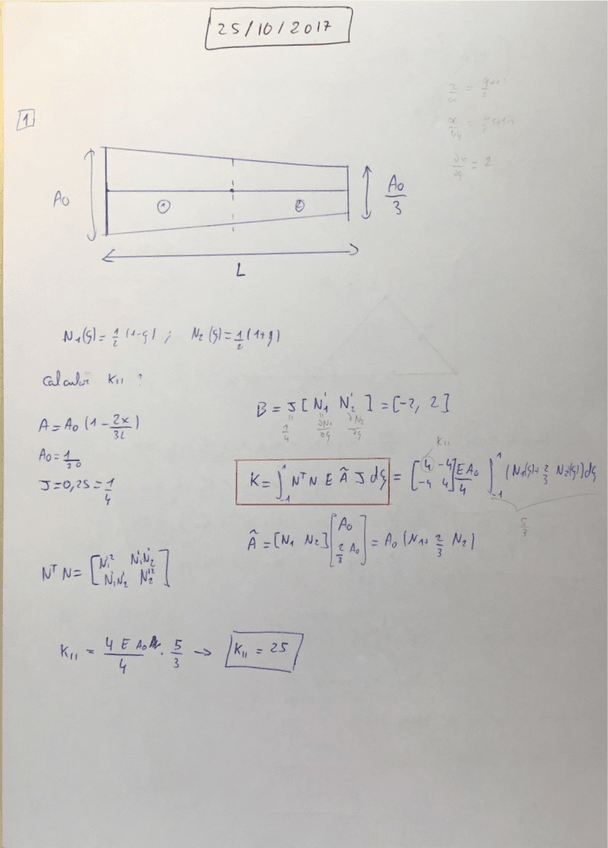 25/10/2017
1
A₀
① ②
A₀/3
L
N₁(ξ) = 1/2 (1-ξ) ; N₂(ξ) = 1/2 (1+ξ)
Calcular K₁₁ ?
A = A₀ (1 - 2x/3L)
A₀ = 1/20
J = 0,25 = 1/4
B = J [N₁' N₂'] = [-2, 2]
1/4 ∂N₁/∂ξ ∂N₂/∂ξ
K₁₁
K = ∫₋₁¹ NᵀN E Ã J dξ = [4 -4; -4 4] EA₀/4 ∫₋₁¹ (N₁(ξ) + 2/3 N₂(ξ)) dξ
5/3
Ã = [N₁ N₂] [A₀; 2/3 A₀] = A₀ (N₁ + 2/3 N₂)
NᵀN = [N₁'² N₁'N₂'; N₁'N₂' N₂'²]
K₁₁ = 4 E A₀/4 · 5/3 → K₁₁ = 25